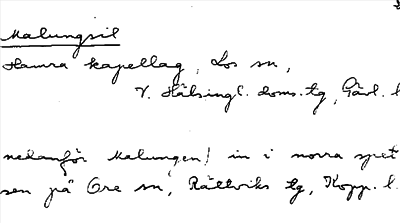 Malungsil
Hamra kapellag, Los sn,
V. Hälsingl. doms. tg, Gävl. l
nedanför Malungen! in i norra spet
sen på Ore sn, Rättviks tg, Kopp. l.